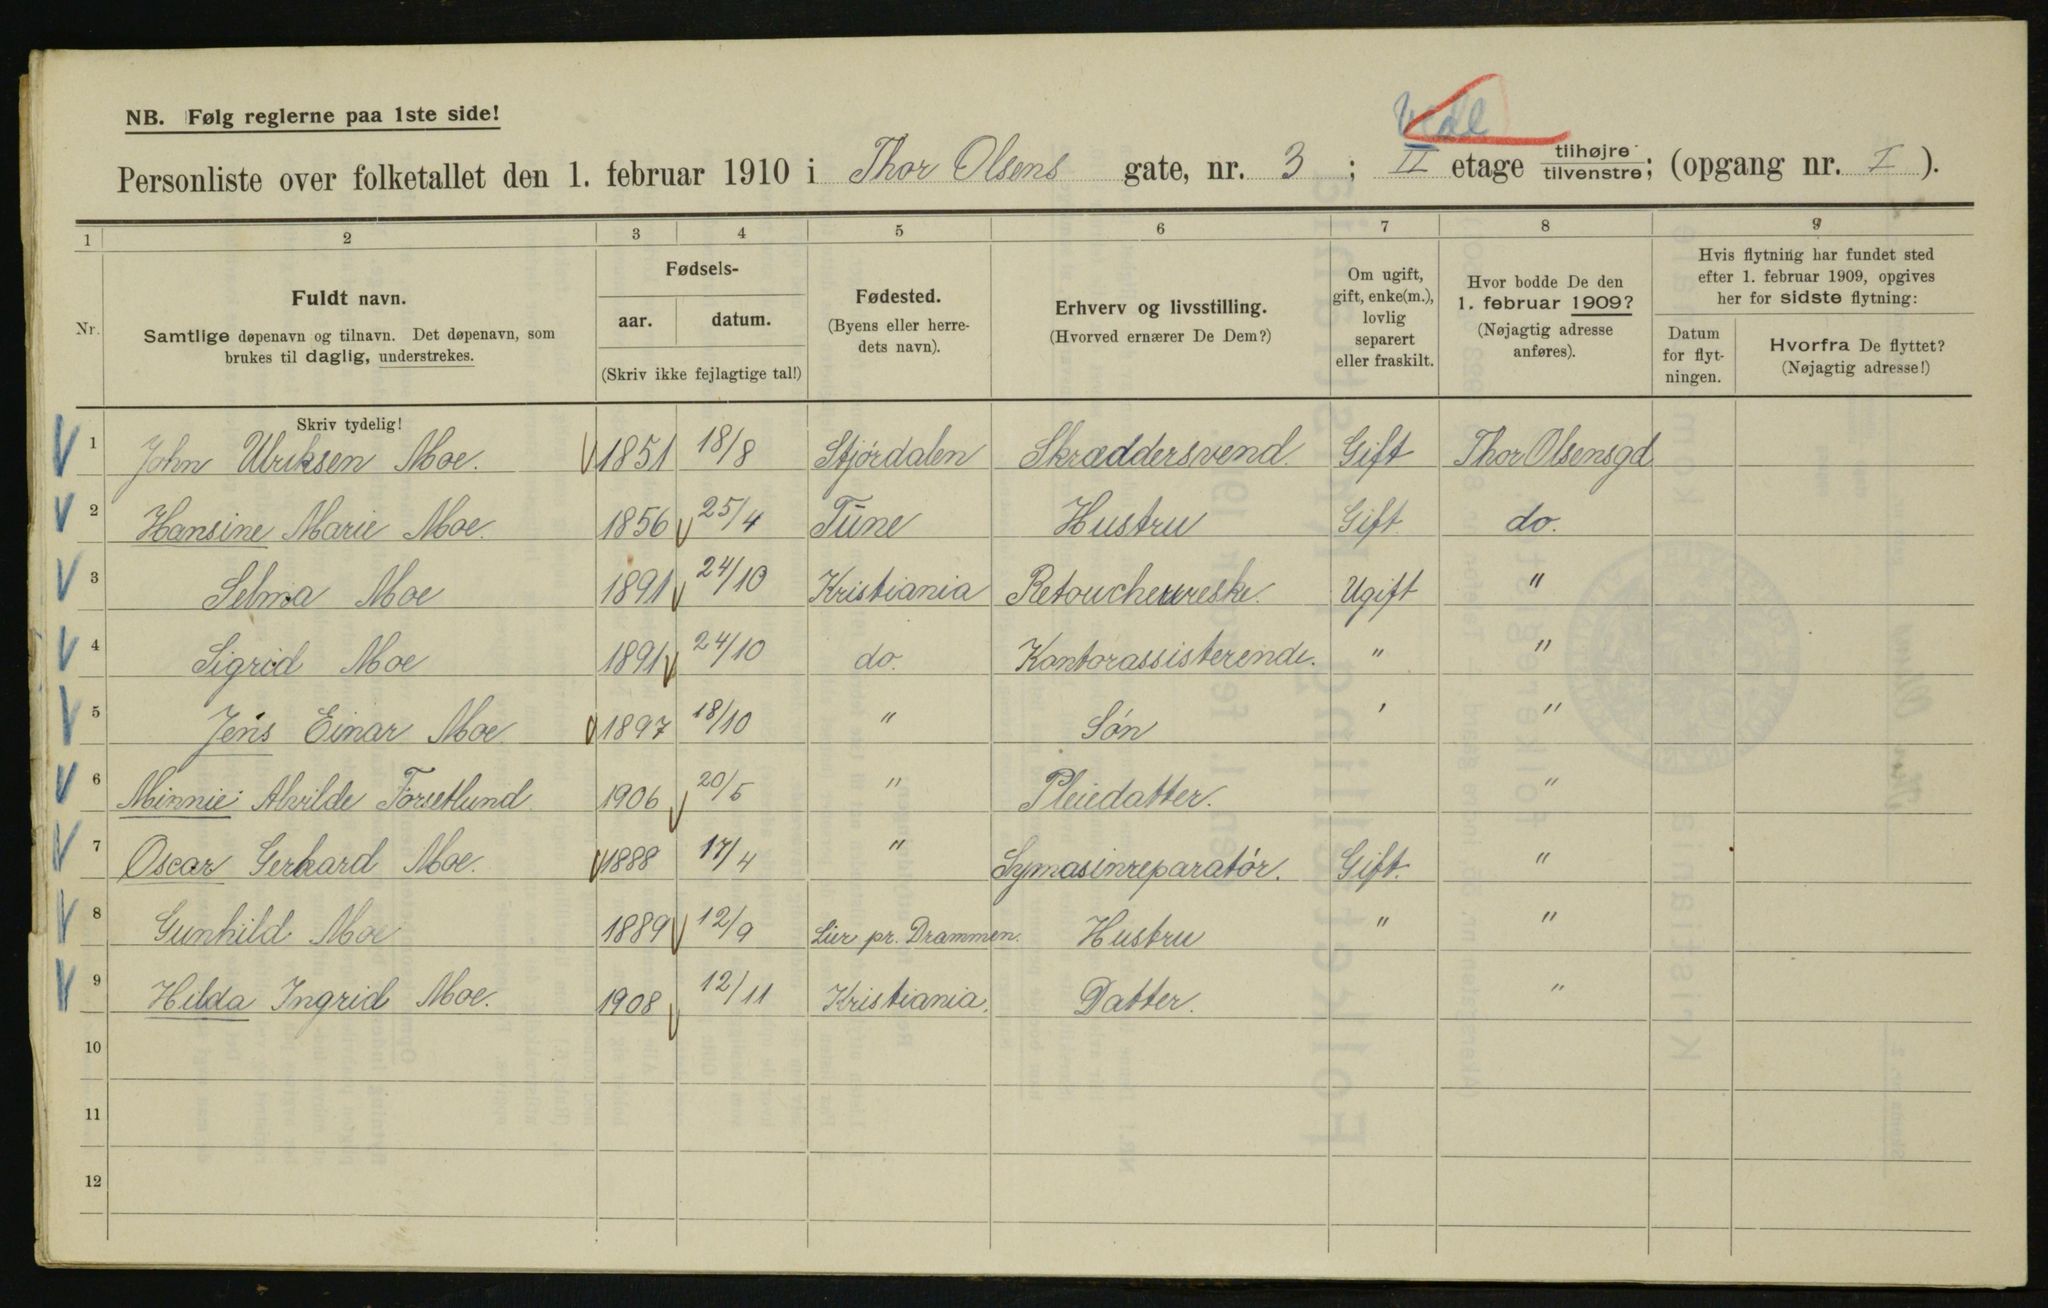 NB. Følg reglerne paa 1ste side!
Personliste over folketallet den 1. februar 1910 i Thor Olsens gate, nr. 3 ; II etage tilhøjre tilvenstre; (opgang nr. I ).
1 2 3 4 5 6 7 8 9
Nr. Fuldt navn. Samtlige døpenavn og tilnavn. Det døpenavn, som brukes til daglig, understrekes.
Fødsels- aar. datum. (Skriv ikke fejlagtige tal!)
Fødested. (Byens eller herredets navn).
Erhverv og livsstilling. (Hvorved ernærer De Dem?)
Om ugift, gift, enke(m.), lovlig separert eller fraskilt.
Hvor bodde De den 1. februar 1909? (Nøjagtig adresse anføres).
Hvis flytning har fundet sted efter 1. februar 1909, opgives her for sidste flytning:
Datum for flytningen. Hvorfra De flyttet? (Nøjagtig adresse!)
Skriv tydelig!
1 John Ulriksen Moe. 1851 18/8 Stjördalen Skræddersvend. Gift Thor Olsensgd
2 Hansine Marie Moe. 1856 25/4 Tune Hustru Gift. do.
3 Selma Moe 1891 24/10 Kristiania Retoucheureske. Ugift "
4 Sigrid Moe 1891 24/10 do. Kontorassisterende. " "
5 Jens Einar Moe 1897 18/10 " Sön ' "
6 Minnie Alvilde Forsetlund 1906 20/5 " Pleiedatter. "
7 Oscar Gerhard Moe. 1888 17/4 " Symasinreparatör. Gift. "
8 Gunhild Moe 1889 12/9 Lier pr. Drammen. Hustru " "
9 Hilda Ingrid Moe. 1908 12/11 Kristiania. Datter. "
10
11
12